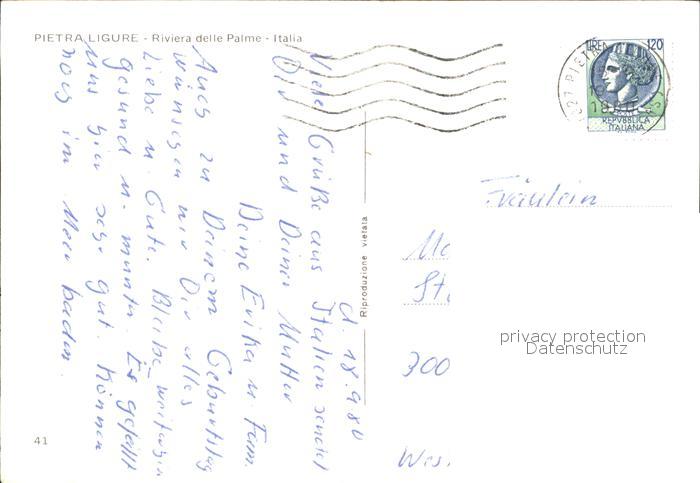 PIETRA LIGURE - Riviera delle Palme - Italia
d. 18.9.80
Viele Grüße aus Italien sendet
Dir und Deiner Mutter
Deine Erika u. Fam.
Auch zu Deinem Geburtstag
wünschen wir Dir alles
Liebe u. Gute. Bleibe weiterhin
gesund u. munter. Es gefällt
uns hier sehr gut. Können
noch im Meer baden.
41
Riproduzione vietata
LIRE 120
REPVBBLICA
ITALIANA
Fräulein
300
privacy protection
Datenschutz